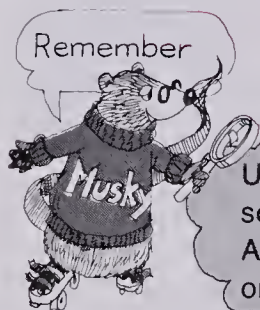 Remember
Musky
U
se
A
on